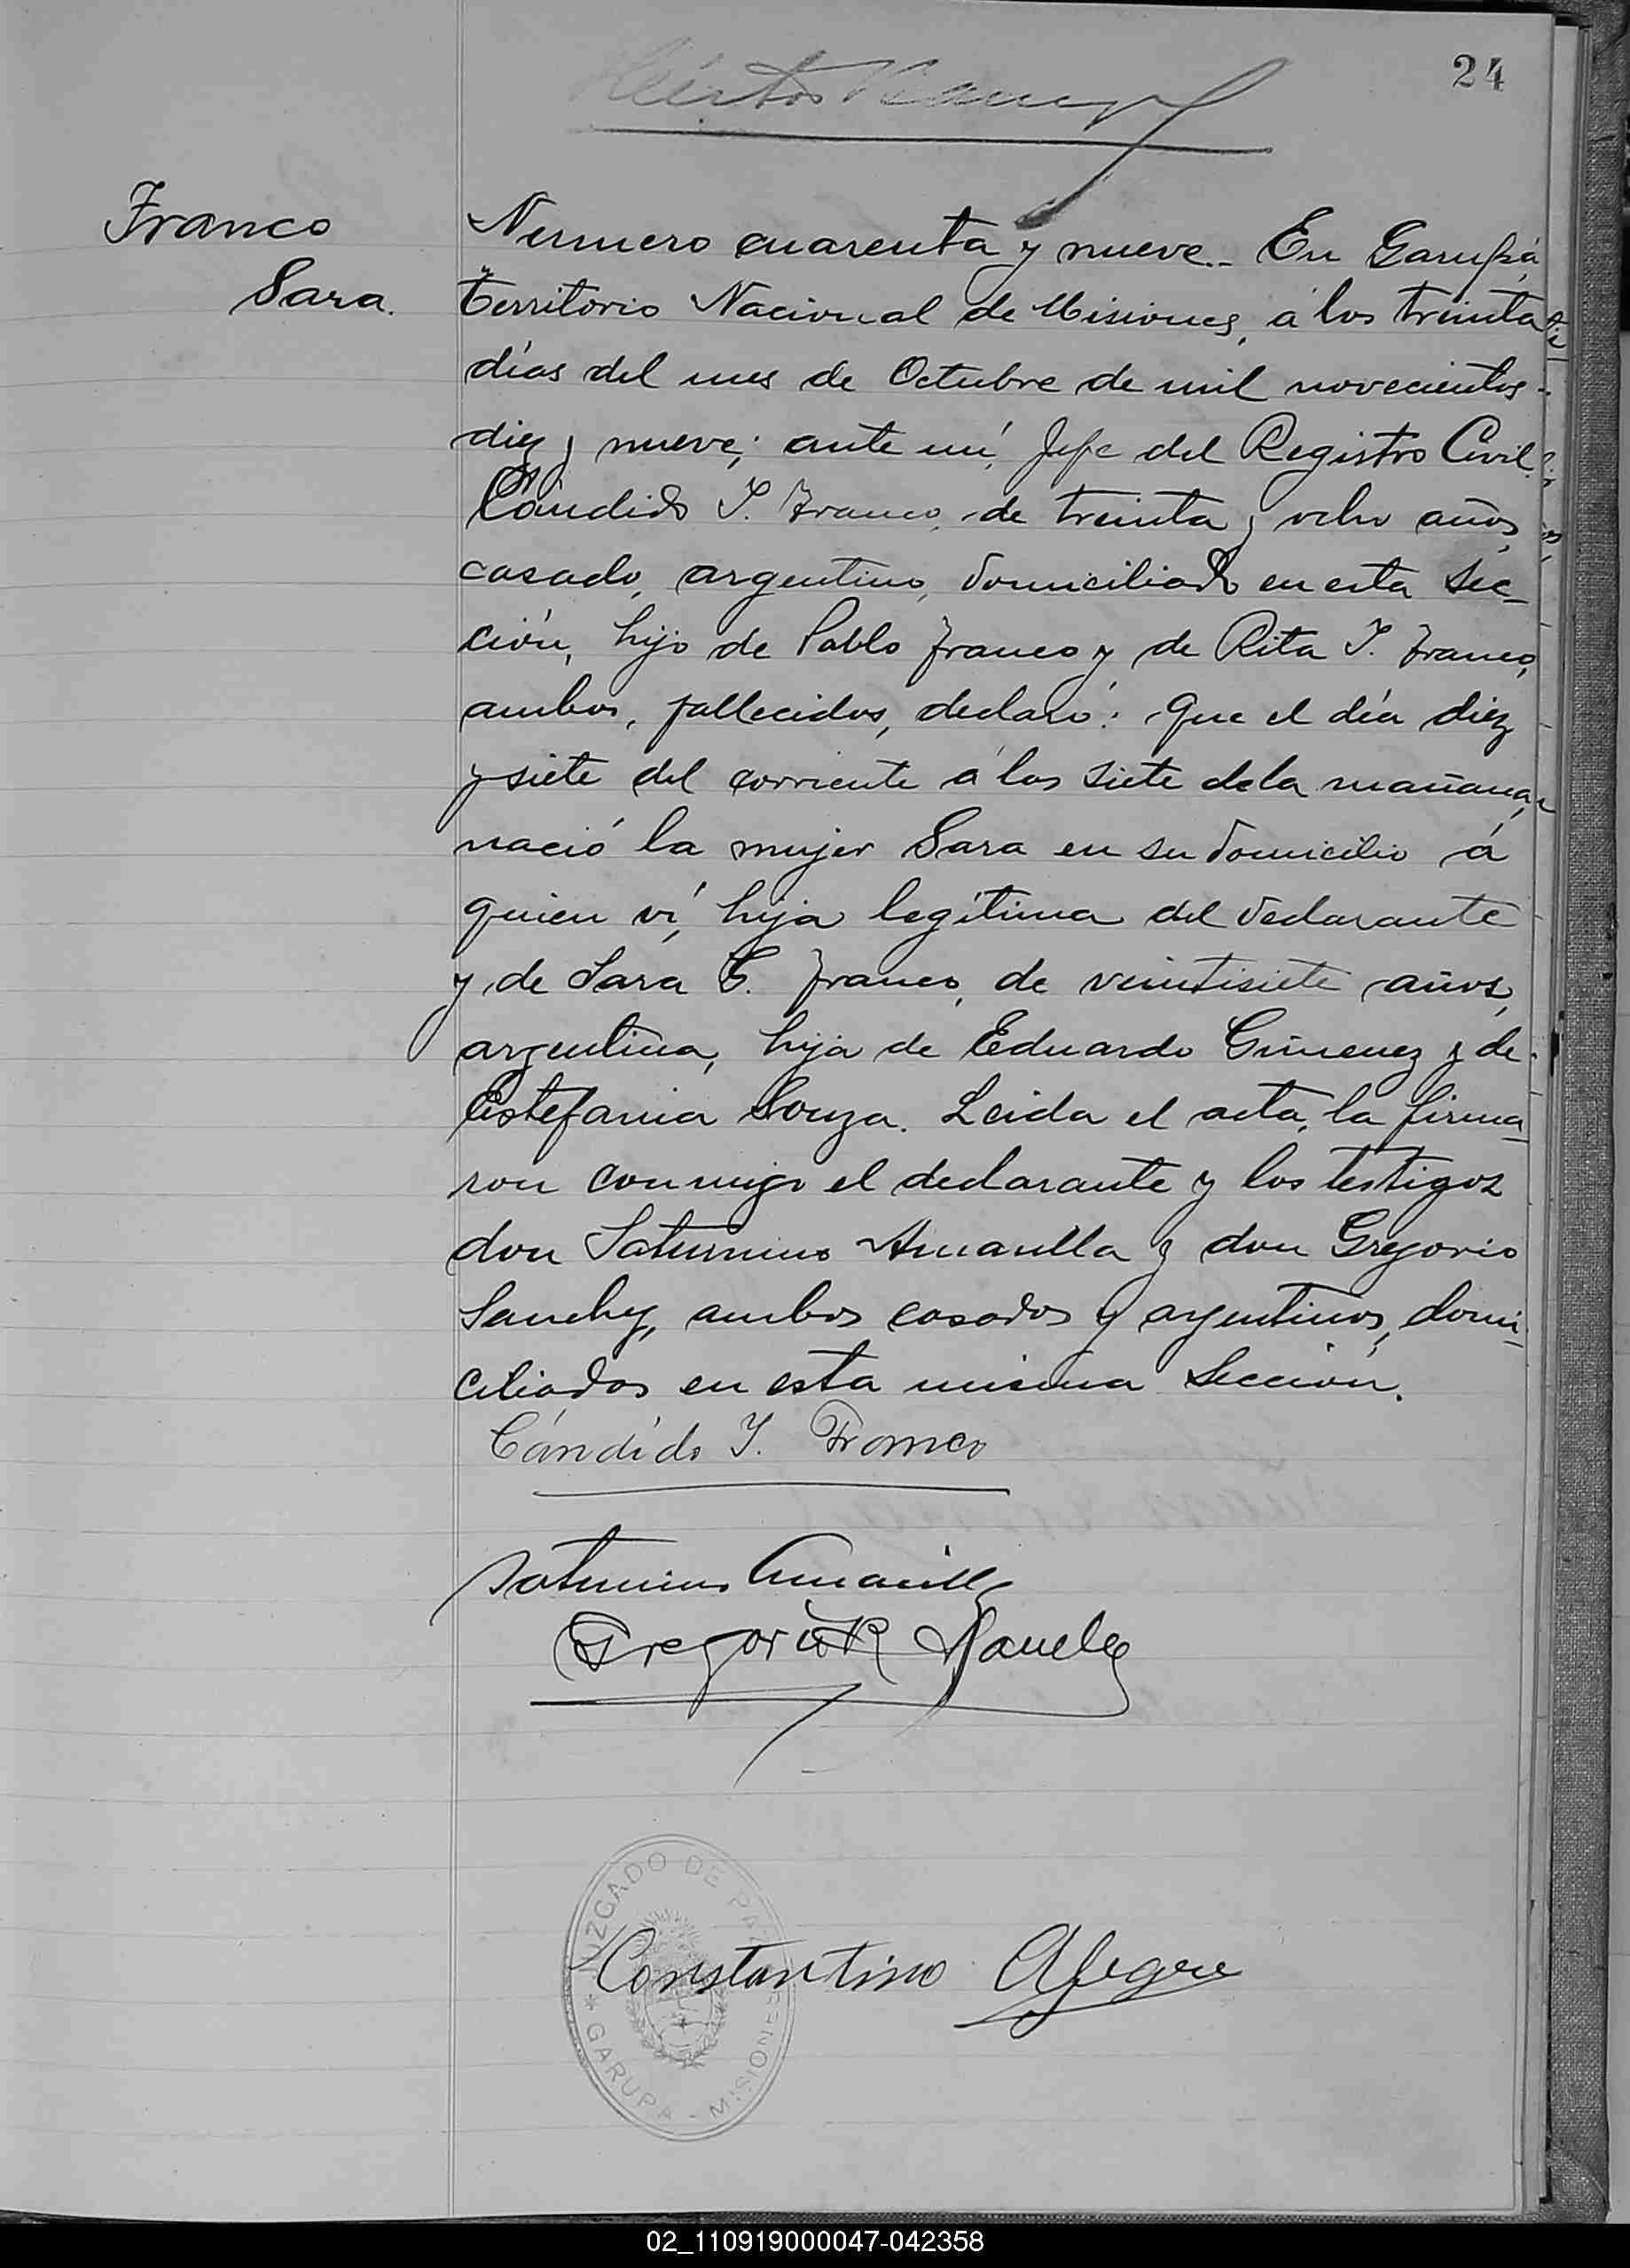 24
Franco
Sara.
Numero cuarenta y nueve.- En Garupá,
Territorio Nacional de Misiones, á los treinta
días del mes de Octubre de mil novecientos
diez y nueve; ante mí, Jefe del Registro Civil
Cándido I. Franco, de treinta y ocho años,
casado, argentino, domiciliado en esta Sec-
ción, hijo de Pablo Franco y de Rita I. Franco,
ambos, fallecidos, declaró: Que el día diez
y siete del corriente á las siete de la mañana,
nació la mujer Sara en su domicilio á
quien ví, hija legítima del declarante
y de Sara G. Franco, de veintisiete años,
argentina, hija de Eduardo Gimenez y de
Estefania Souza. Leida el acta, la firma-
ron conmigo el declarante y los testigos
don Saturnino Amarilla y don Gregorio
Sanchez, ambos casados y argentinos, domi-
ciliados en esta misma Sección.
Cándido I. Franco
Saturnino Amarilla
Gregorio R
JUZGADO DE PAZ
Constantino Alegre
GARUPA - MISIONES
02_110919000047-042358